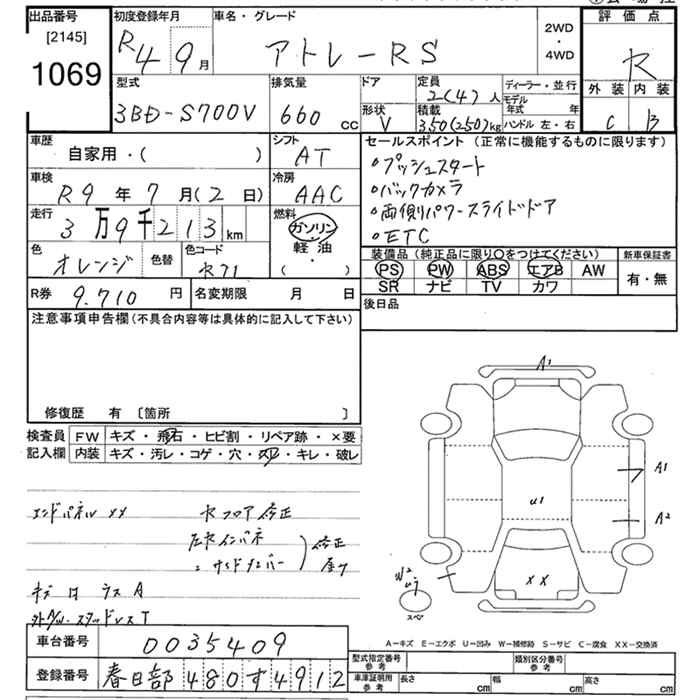 出品番号 初度登録年月 車名・グレード 評価点
[2145] 2WD
1069 R4 9月 アトレーRS ・4WD R
型式 排気量 ドア 定員 ディーラー・並行 外装 内装
3BD-S700V 660cc 2(4)人 モデル年式 年 C B
形状 V 積載 350(250)kg ハンドル 左・右
車歴 シフト セールスポイント(正常に機能するものに限ります)
自家用・( ) AT ・プッシュスタート
車検 冷房 ・バックカメラ
R9年7月(2日) AAC ・両側パワースライドドア
走行 燃料 ・ETC
3万9千213km ガソリン・軽油・( )
装備品(純正品に限り○をつけてください) 新車保証書
色 色替 色コード PS PW ABS エアB AW 有・無
オレンジ R71 SR ナビ TV カワ
R券 9.710円 名変期限 月 日 後日品
注意事項申告欄(不具合内容等は具体的に記入して下さい)
修復歴 有 [箇所 ]
検査員 FW キズ・飛石・ヒビ割・リペア跡・×要
記入欄 内装 キズ・汚レ・コゲ・穴・スレ・キレ・破レ
A1
A1
U1
A2
エンドパネルXX Rフロア修正
左Rインパネ
〃サイドメンバー 修正
W2
XX
スペア
A
外アルミ・スタッドレスT
A-キズ E-エクボ U-凹み W-補修跡 S-サビ C-腐食 XX-交換済
車台番号 0035409
型式指定番号 参考 類別区分番号 参考
登録番号 春日部480す4912
車庫証明用 参考 長さ cm 幅 cm 高さ cm